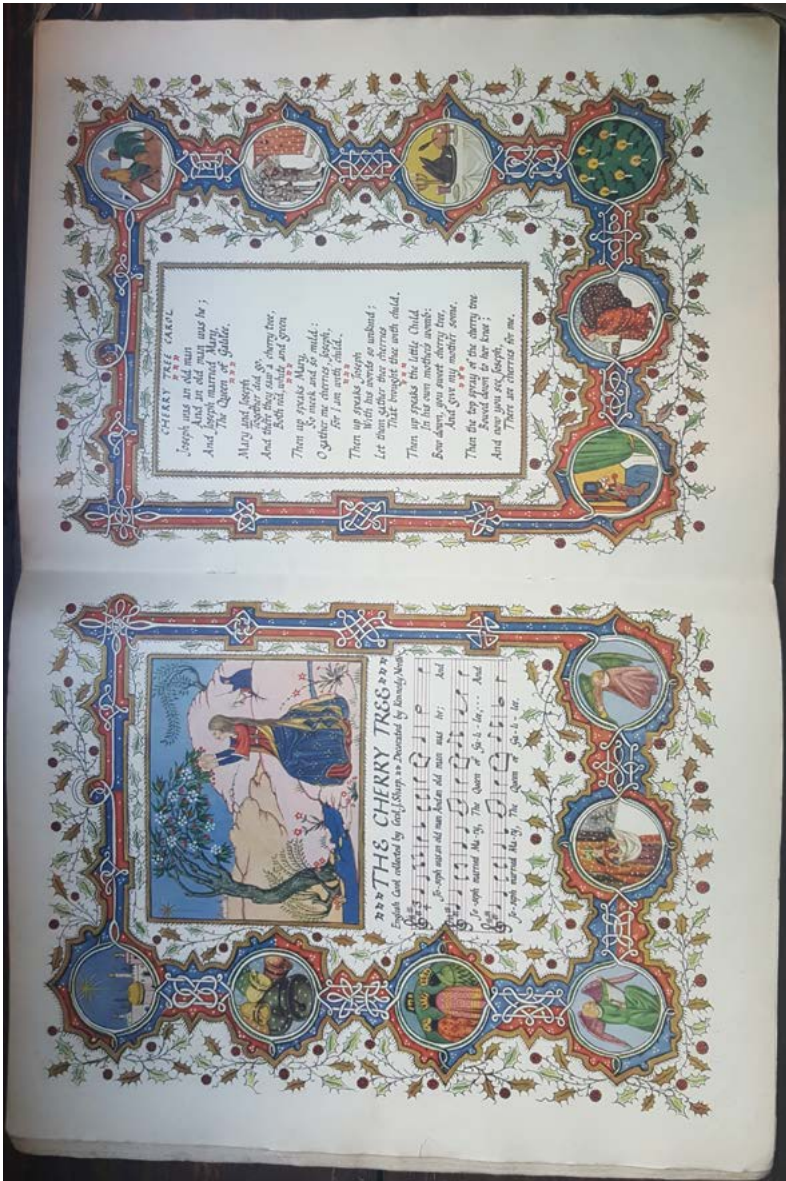 THE CHERRY TREE
English Carol collected by Cecil J. Sharp. Decorated by Kennedy North
Jo-seph was an old man And an old man was he; And
Jo-seph married Ma-ry, The Queen of Ga-li-lee, --- And
Jo-seph married Ma-ry, The Queen of Ga-li-lee.
CHERRY TREE CAROL
Joseph was an old man
And an old man was he;
And Joseph married Mary,
The Queen of Galilee.
Mary and Joseph
Together did go,
And there they saw a cherry tree,
Both red, white and green
Then up speaks Mary,
So meek and so mild:
O gather me cherries Joseph,
For I am with child.
Then up speaks Joseph
With his words so unkind;
Let them gather thee cherries
That brought thee with child.
Then up speaks the little Child,
In his own mother's womb:
Bow down, you sweet cherry tree,
And give my mother some.
Then the top spray of the cherry tree
Bowed down to her knee;
And now you see, Joseph,
There are cherries for me.